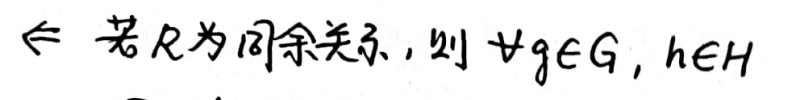 ⇐ 若R为同余关系，则 ∀g∈G, h∈H